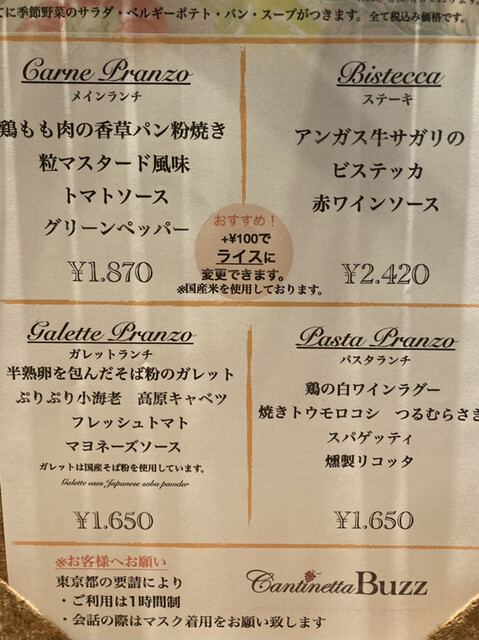 てに季節野菜のサラダ・ベルギーポテト・パン・スープがつきます。全て税込み価格です。
Carne Pranzo
メインランチ
鶏もも肉の香草パン粉焼き
粒マスタード風味
トマトソース
グリーンペッパー
¥1.870
Bistecca
ステーキ
アンガス牛サガリの
ビステッカ
赤ワインソース
¥2.420
おすすめ!
+¥100で
ライスに
変更できます。
※国産米を使用しております。
Galette Pranzo
ガレットランチ
半熟卵を包んだそば粉のガレット
ぷりぷり小海老 高原キャベツ
フレッシュトマト
マヨネーズソース
ガレットは国産そば粉を使用しています。
Galette uses Japanese soba powder
¥1.650
Pasta Pranzo
パスタランチ
鶏の白ワインラグー
焼きトウモロコシ つるむらさき
スパゲッティ
燻製リコッタ
¥1.650
※お客様へお願い
東京都の要請により
・ご利用は1時間制
・会話の際はマスク着用をお願い致します
Cantinetta BUZZ